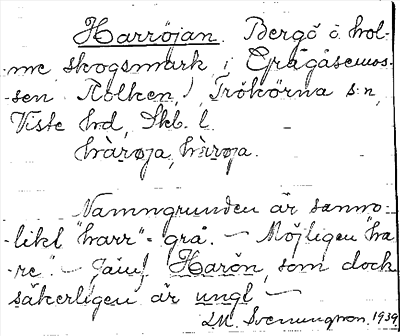 Harröjan. Bergö o. hol-
me, skogsmark i Grågåsemos-
sen (Kolken), Trökörna s:n,
Viste hd, Skb. l.
hàrøja, 
Namngrunden är sanno-
likt "harr" = grå. — Möjligen "ha-
re". — Jämf. Harön, som dock
säkerligen är ungl —
Svenungsson. 1939